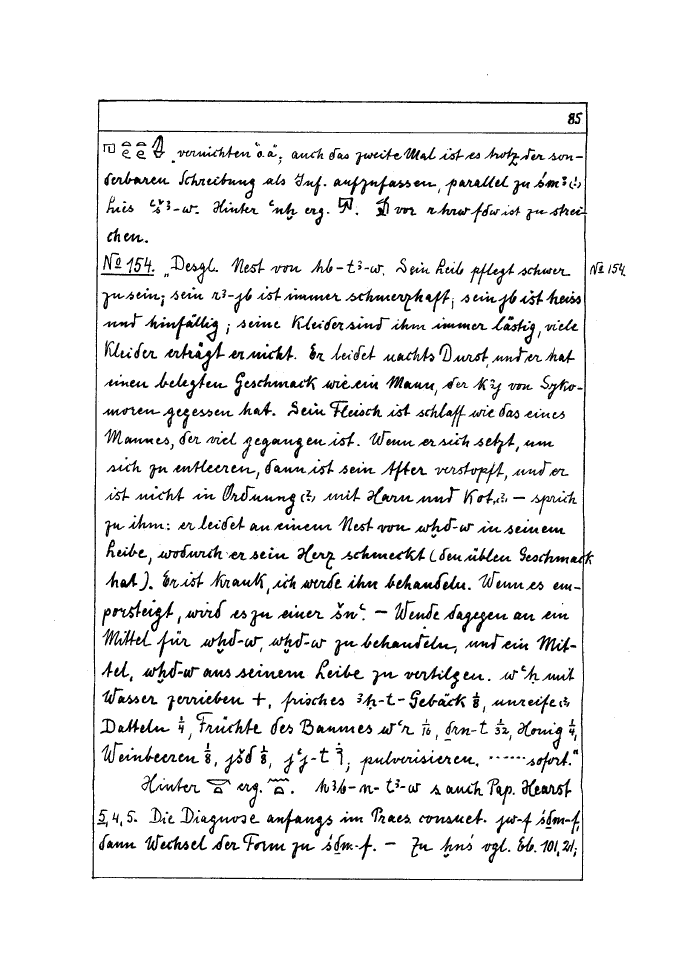 85
vernichten "o.ä"; auch das zweite Mal ist es trotz der son-
derbaren Schreibung als Inf. aufzufassen, parallel zu śmꜣ(?)
lies ꜥšꜣ-w. Hinter ꜥnḫ erg. vor r hrw fdw ist zu strei-
chen.
№ 154. „Desgl. Nest von ḥb-tꜣ-w. Sein Leib pflegt schwer
№ 154.
zu sein; sein rꜣ-jb ist immer schmerzhaft; sein jb ist heiss
und hinfällig; seine Kleider sind ihm immer lästig, viele
Kleider erträgt er nicht. Er leidet nachts Durst, und er hat
einen belegten Geschmack wie ein Mann, der kꜣj von Syko-
moren gegessen hat. Sein Fleisch ist schlaff wie das eines
Mannes, der viel gegangen ist. Wenn er sich setzt, um
sich zu entleeren, dann ist sein After verstopft, und er
ist nicht in Ordnung(?) mit Harn und Kot(?) – sprich
zu ihm: er leidet an einem Nest von wḫd-w in seinem
Leibe, wodurch er sein Herz schmeckt (den üblen Geschmack
hat). Er ist krank, ich werde ihn behandeln. Wenn es em-
porsteigt, wird es zu einer šnꜥ. – Wende dagegen an ein
Mittel für wḫd-w, wḫd-w zu behandeln, und ein Mit-
tel, wḫd-w aus seinem Leibe zu vertilgen. wꜥḥ mit
Wasser zerrieben +, frisches ꜣḫ-t-Gebäck ⅛, unreife(?)
Datteln ¼, Früchte des Baumes wꜥr 1/16, drn-t 1/32, Honig ¼,
Weinbeeren ⅛, jšd ⅛, jꜥj-t; pulverisieren, ...... sofort."
Hinter erg. ḥꜣb-n-tꜣ-w s auch Pap. Hearst
5, 4, 5. Die Diagnose anfangs im Praes consuet. jw-f śdm-f,
dann Wechsel der Form zu śdm-f. – Zu ḫnś vgl. Eb. 101, 21;